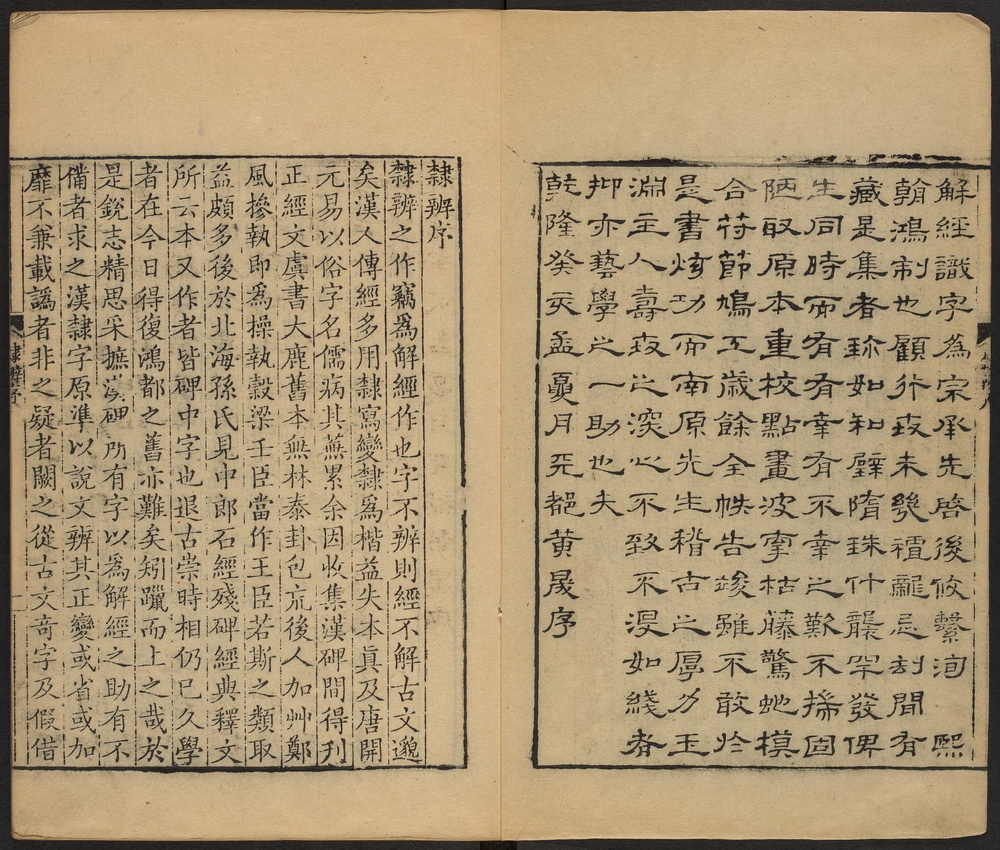 解經識字為宗承先啓後攸繫洵熙
朝鴻制也顧行世未幾禮龐忌刻間有
藏是集者珎如和璧隋珠什襲罕發俾
生同時而有有幸有不幸之歎不揣固
陋取原本重校點畫波撆枯藤驚虵模
合符節鳩工歲餘全帙告竣雖不敢於
是書炫功而南原先生稽古之厚力玉
淵主人壽世之深心不致不浸如綫者
抑亦藝學之一助也夫
乾隆癸亥孟夏月天都黄晟序
隸辨序
隸辨之作竊為解經作也字不辨則經不解古文邈
矣漢人傳經多用隸寫變隸為楷益失本真及唐開
元易以俗字名儒病其蕪累余因收集漢碑間得刋
正經文虞書大鹿舊本無林泰封包㡆後人加艸鄭
風摻執即為操執穀梁壬臣當作王臣若斯之類取
益頗多後於北海孫氏見中郎石經殘碑經典釋文
所云本又作者皆碑中字也退古崇時相仍已久學
者在今日得復鴻都之舊亦難矣矧躐而上之哉於
是銳志精思采摭漢碑所有字以為解經之助有不
備者求之漢隸字原準以說文辨其正變或省或加
靡不兼載譌者非之疑者闕之從古文奇字及假借
隸辨序